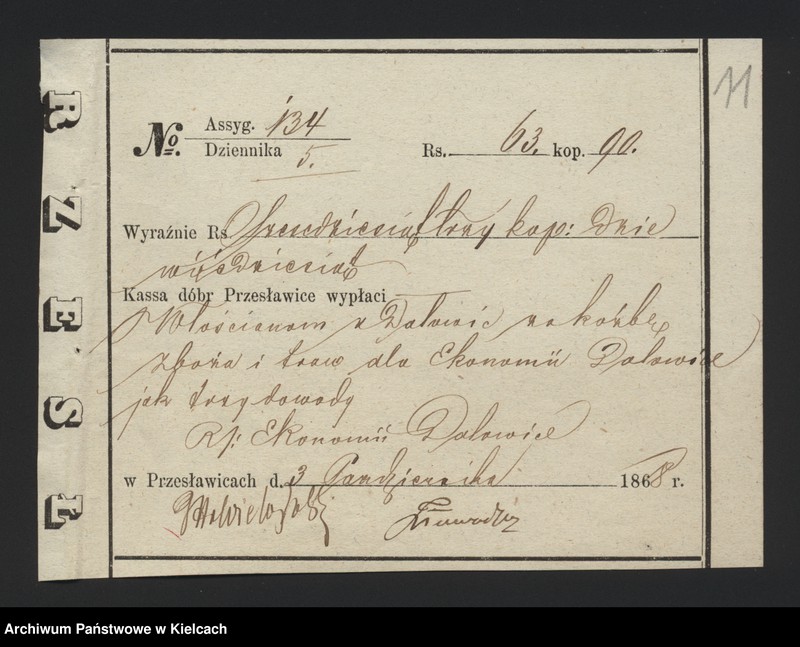 RZESŁ
11
No. Assyg. 134
Dziennika 5.
Rs. 63. kop. 90.
Wyraźnie Rs Sześcdziesiąt trzy kop: Dzie
więcdziesiąt
Kassa dóbr Przesławice wypłaci
Włościanom z Dalowic za kośbę
zboża i traw dla Ekonomii Dalowice
jak trzy dowody
Rp: Ekonomii Dalowice
w Przesławicach d. 3 Października 1868 r.
Archiwum Państwowe w Kielcach